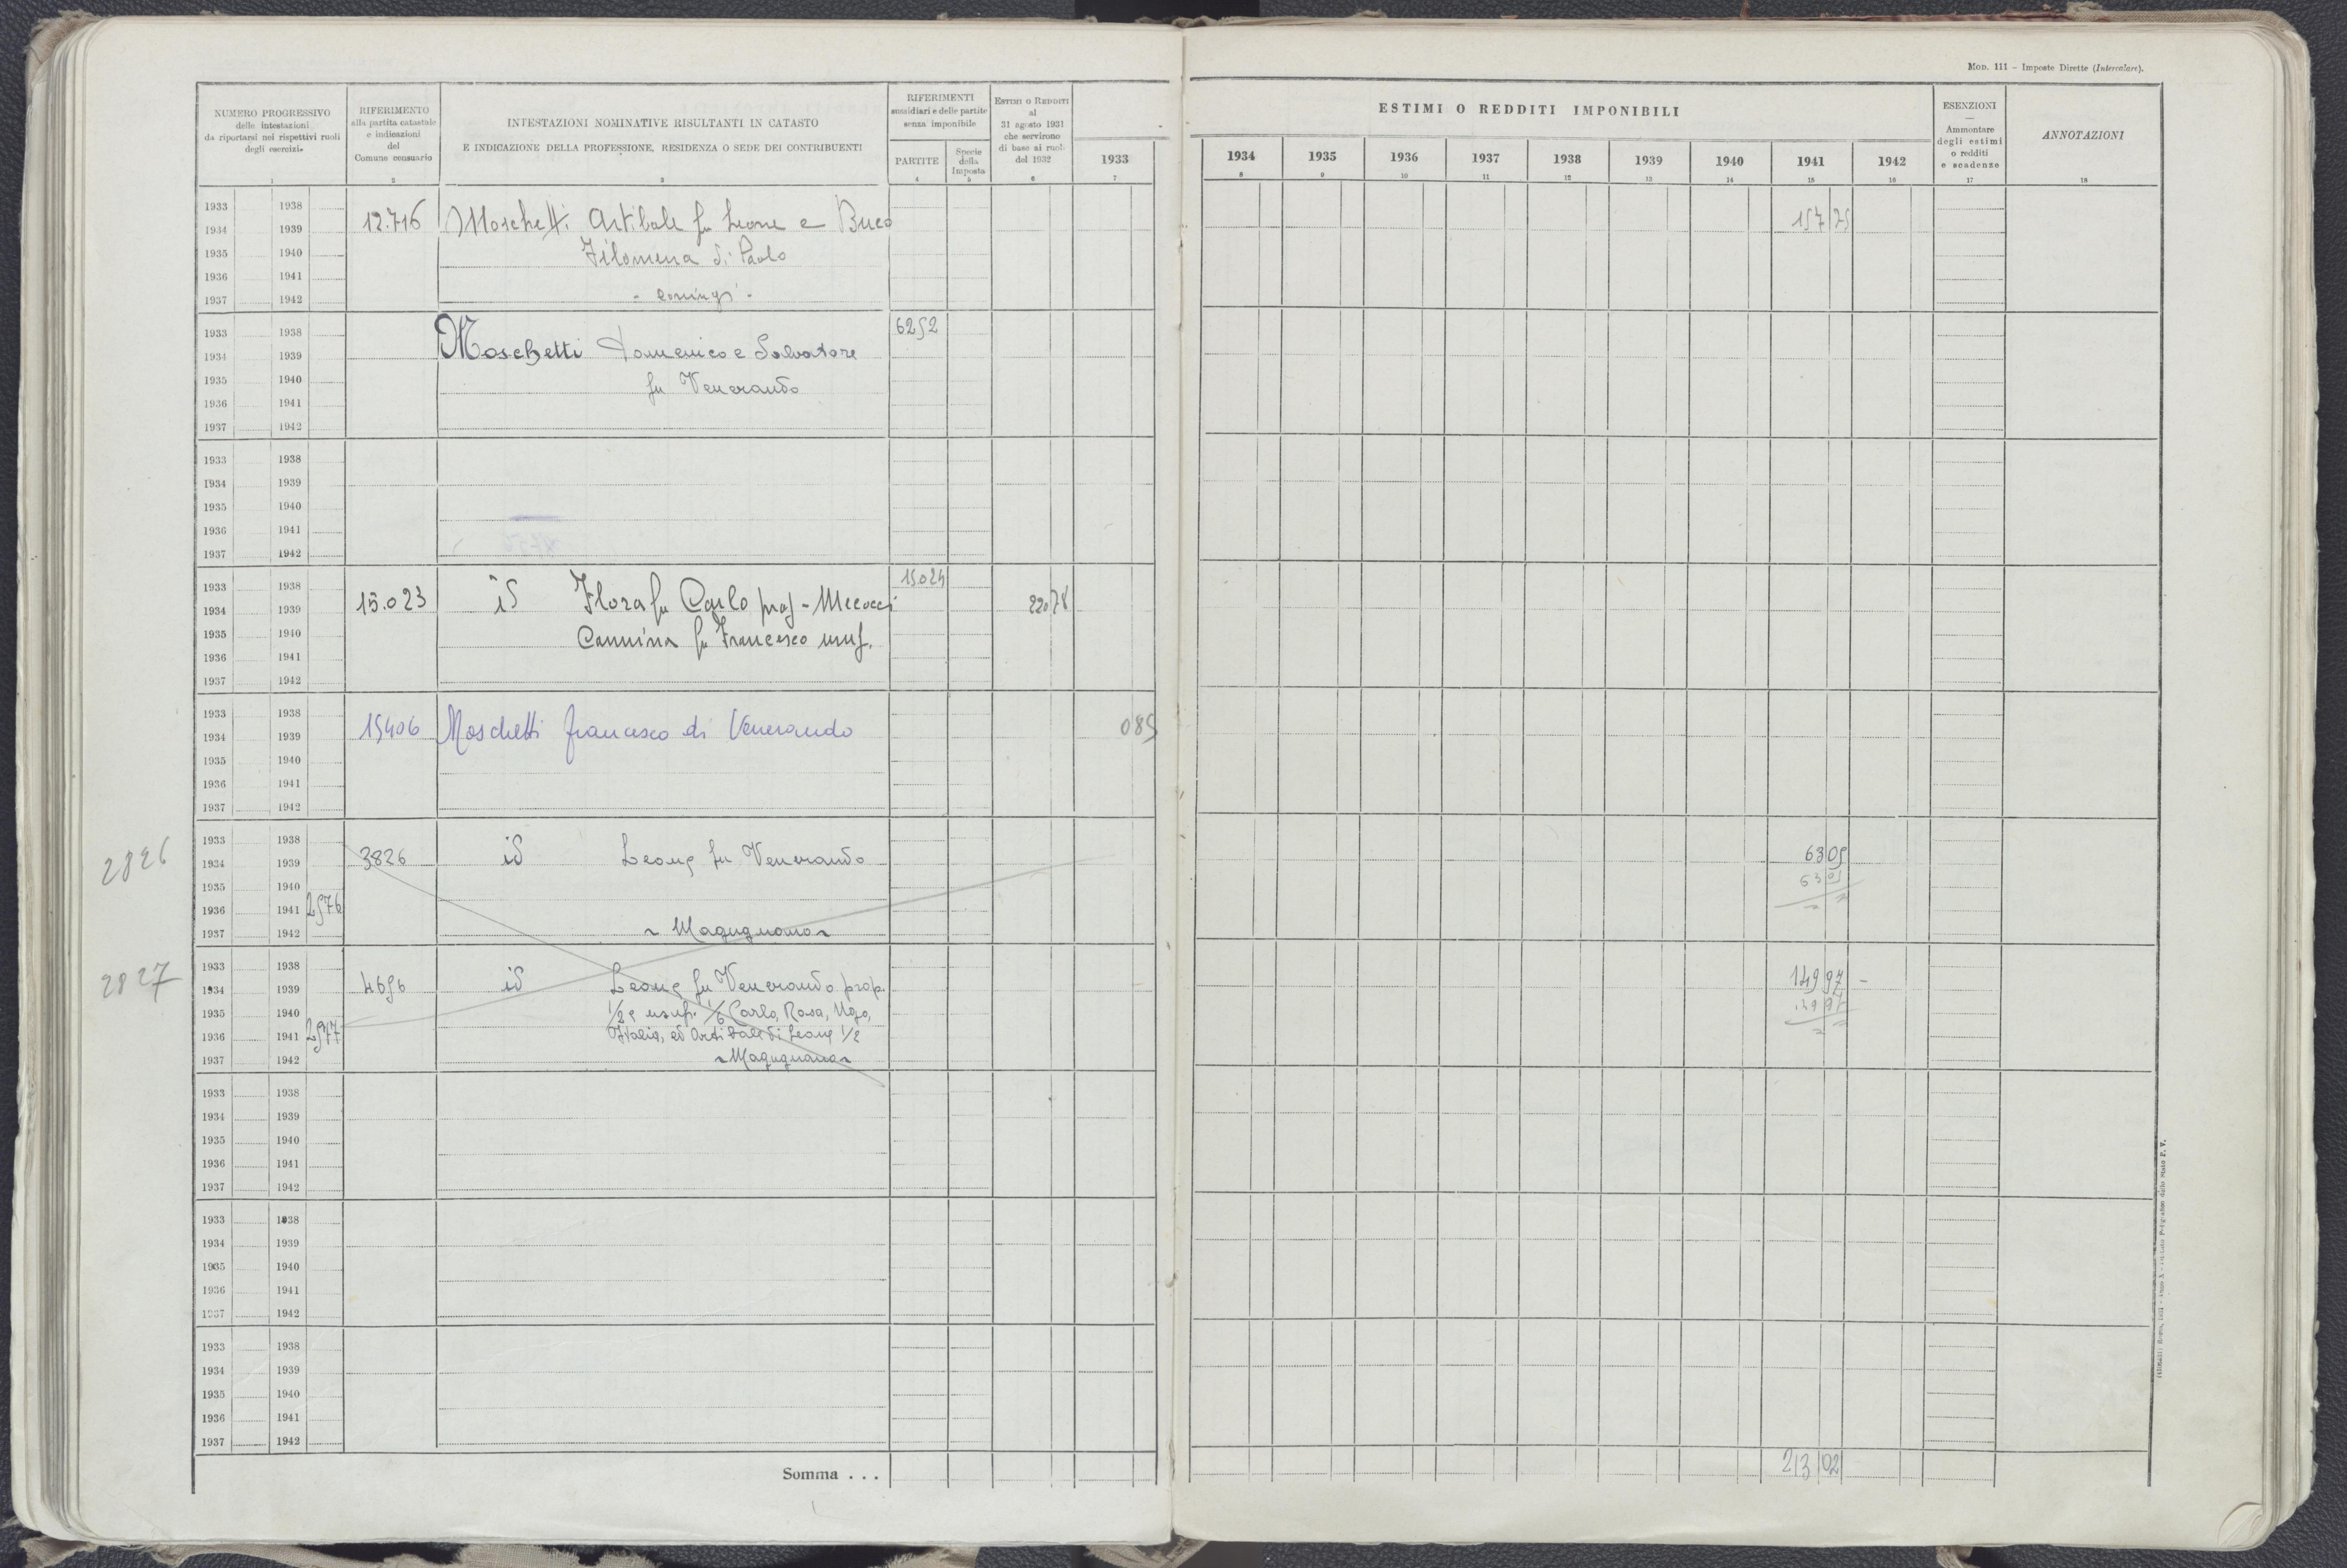 MOD. 111 – Imposte Dirette (Intercalare).
NUMERO PROGRESSIVO
delle intestazioni
da riportarsi nei rispettivi ruoli
degli esercizi.
1
RIFERIMENTO
alla partita catastale
e indicazioni
del
Comune censuario
2
INTESTAZIONI NOMINATIVE RISULTANTI IN CATASTO
E INDICAZIONE DELLA PROFESSIONE, RESIDENZA O SEDE DEI CONTRIBUENTI
3
RIFERIMENTI
sussidiari e delle partite
senza imponibile
PARTITE
4
Specie
della
Imposta
5
ESTIMI O REDDITI
al
31 agosto 1931
che servirono
di base ai ruoli
del 1932
6
1933
7
ESTIMI O REDDITI IMPONIBILI
1934 1935 1936 1937 1938 1939 1940 1941 1942
8 9 10 11 12 13 14 15 16
ESENZIONI
—
Ammontare
degli estimi
o redditi
e scadenze
17
ANNOTAZIONI
18
1933 1938
1934 1939 12.716 Moschetti Artibale fu Leone e Buco 157 25
1935 1940 Filomena di Paolo
1936 1941
1937 1942 - coniugi -
1933 1938 6252
1934 1939 Moschetti Domenico e Salvatore
1935 1940 fu Venerando
1936 1941
1937 1942
1933 1938
1934 1939
1935 1940
1936 1941
1937 1942
1933 1938 15024
1934 1939 15.023 id Flora fu Carlo prop - Mecocci 220 78
1935 1940 Cannina fu Francesco usuf.
1936 1941
1937 1942
1933 1938
1934 1939 15406 Moschetti Francesco di Venerando 085
1935 1940
1936 1941
1937 1942
1933 1938
2826 1934 1939 3826 id Leone fu Venerando 63 05
1935 1940 63 05
1936 1941 2576
1937 1942 ~ Magugnano ~
1933 1938
2827 1934 1939 4656 id Leone fu Venerando prop. 149 97 -
1935 1940 1/2 e usuf. 1/6 Carlo, Rosa, Ugo, 149 97
1936 1941 2577 Italia, ed Artibale di Leone 1/2
1937 1942 ~ Magugnano ~
1933 1938
1934 1939
1935 1940
1936 1941
1937 1942
1933 1938
1934 1939
1935 1940
1936 1941
1937 1942
1933 1938
1934 1939
1935 1940
1936 1941
1937 1942
Somma . . . 213 02